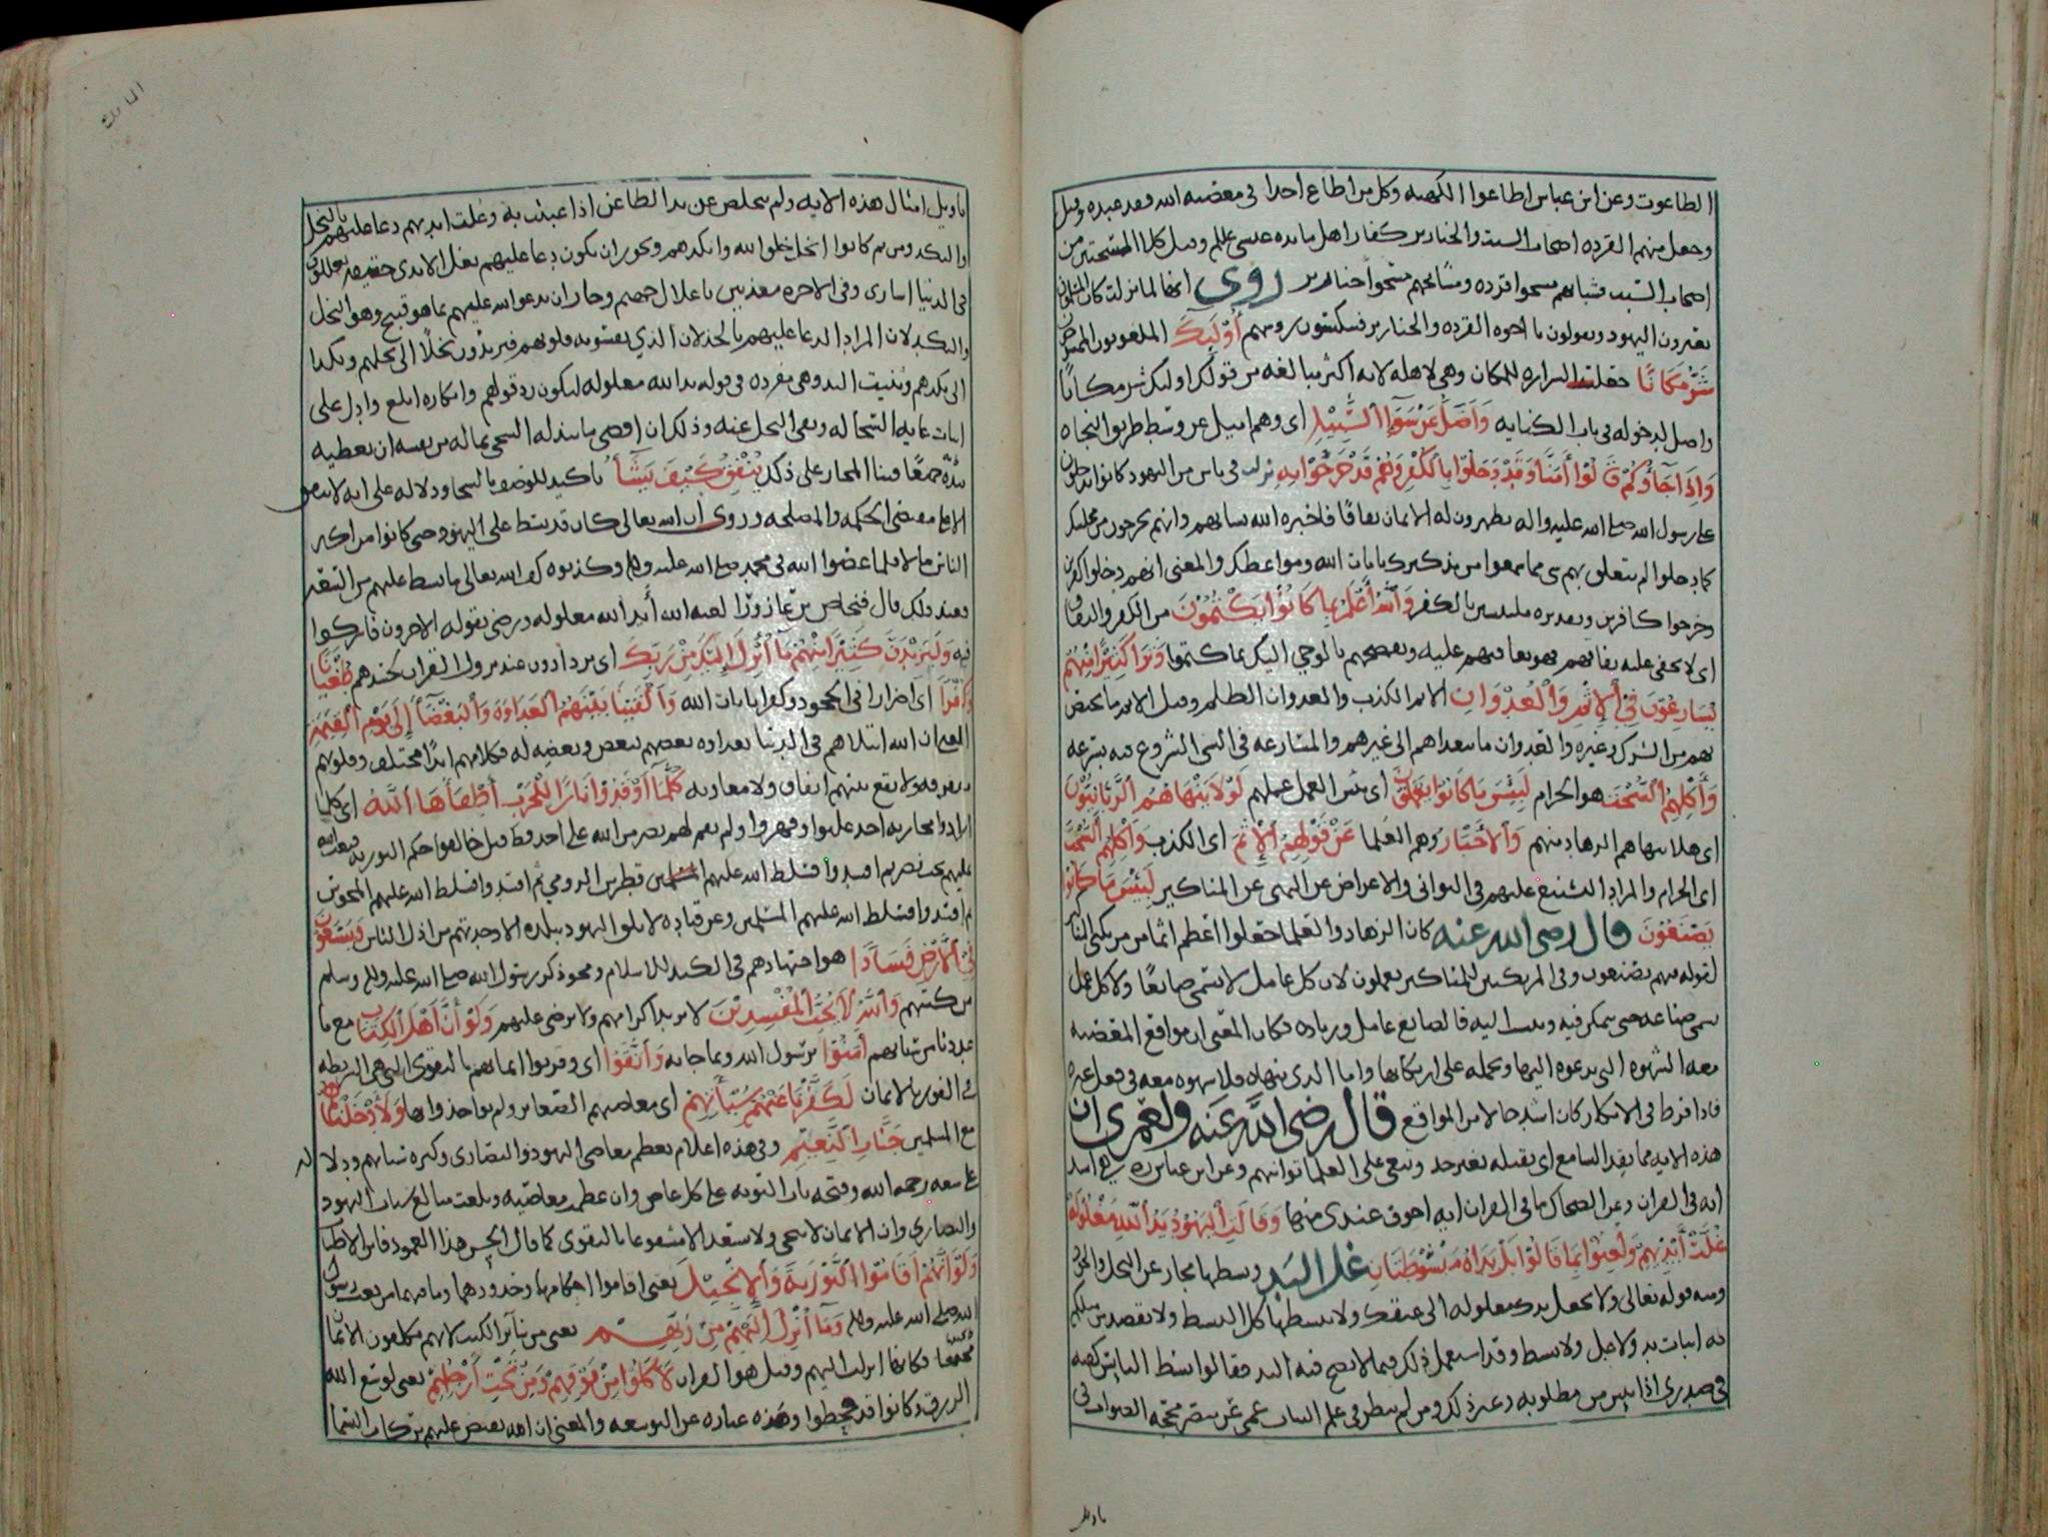 الطاعوت وعن ابن عباس اطاعوا الكهنه وكل من اطاع احدا في معصيه الله فقد عبده وقيل
وجعل منهم القرده اصحاب السبت والخنازير كفار اهل مايده عيسى وقيل كلا المسخين من
اصحاب السبت فشبانهم مسخوا قرده ومشايخهم مسخوا خنازير روي انها لما نزلت كان المسلمون
يعيرون اليهود ويقولون يا اخوه القرده والخنازير فينكسون روسهم أُوْلَٰئِكَ الملعونون الممسوخون
شَرٌّ مَكَانًا جعلت الشراره للمكان وهي لاهله لانه اكثر مبالغه من قولك اوليك شر مكانا
وَأَضَلُّ عَنْ سَوَآءِ السَّبِيْلِ اي وهم اميل عن وسط طريق النجاه
وَإِذَا جَآؤُكُمْ قَالُوْا أَمَنَّا وَقَدْ دَخَلُوْا بِالْكُفْرِ وَهُمْ قَدْ خَرَجُوْا بِهِ نزلت في ناس من اليهود كانوا يدخلون
على رسول الله صلى الله عليه واله يظهرون له الايمان نفاقا فاخبره الله بشانهم وانهم يخرجون من مجلسك
كما دخلوا لم يتعلق بهم شي مما سمعوا من تذكيرك بايات الله ومواعظك والمعنى انهم دخلوا كافرين
وخرجوا كافرين وتقديره ملتبسين بالكفر وَاللَّهُ أَعْلَمُ بِمَا كَانُوْا يَكْتُمُوْنَ من الكفر والنفاق
وَتَرَا كَثِيْرًا مِنْهُمْ
يُسَارِعُوْنَ فِيْ الإِثْمِ وَالْعُدْوَانِ الاثم الكذب والعدوان الظلم وقيل الاثم ما يختص
بهم من الشرك وغيره والعدوان ما يتعداهم الى غيرهم والمسارعه في الشي الشروع فيه بسرعه
وَأَكْلِهِمُ السُّحْتَ هو الحرام لَبِئْسَ مَا كَانُوْا يَعْمَلُوْنَ اي بئس العمل عملهم لَوْلاَ يَنْهَاهُمُ الرَّبَّانِيُّوْنَ
اي هلا ينهاهم الزهاد منهم وَالأَحْبَارُ وهم العلما عَنْ قَوْلِهِمُ الإِثْمَ اي الكذب وَأَكْلِهِمُ السُّحْتَ
اي الحرام والمراد التشنيع عليهم في التواني والاعراض عن النهي عن المناكير لَبِئْسَ مَا كَانُوْا
يَصْنَعُوْنَ قال رضي الله عنه كان الزهاد والعلما جعلوا اعظم اثما من مرتكبي المناكير
لقوله فيهم يصنعون وفي المرتكبين للمناكير يعملون لان كل عامل لا يسمى صانعا ولا كل عمل
يسمى صناعه حتى يتمكن فيه وينسب اليه فالصانع عامل وزياده فكان المعنى ان مواقع المعصيه
معه الشهوه التي تدعوه اليها وتحمله على ارتكابها واما الذي ينهاه فلا شهوه معه في فعل غيره
فاذا فرط في الانكار كان اشد حالا من المواقع قال رضي الله عنه ولعمري ان
هذه الايه مما يقذ السامع وينعى على العلما توانيهم وعن ابن عباس هي اشد
ايه في القران وعن الضحاك ما في القران ايه اخوف عندي منها وَقَالَتِ الْيَهُوْدُ يَدُ اللَّهِ مَغْلُوْلَةٌ
غُلَّتْ أَيْدِيْهِمْ وَلُعِنُوْا بِمَا قَالُوْا بَلْ يَدَاهُ مَبْسُوْطَتَانِ غل اليد وبسطها مجاز عن البخل والجود
ومنه قوله تعالى ولا تجعل يدك مغلوله الى عنقك ولا تبسطها كل البسط ولا يقصد من يتكلم
به اثبات يد ولا غل ولا بسط وقد استعمل ذلك فيما لا تصح فيه اليد فقالوا بسط الياس كفيه
في صدري اذا ييس من مطلوبه وغير ذلك ومن لم ينظر في علم البيان عمي عن تبصر محجه الصواب في
تاويل
تاويل امثال هذه الايه ولم يتخلص من يد الطاعن اذا عبثت به وغلت ايديهم دعا عليهم بالبخل
والنكد ومن ثم كانوا ابخل خلق الله وانكدهم ويجوز ان يكون دعا عليهم بغل الايدي حقيقه يغللون
في الدنيا اسارى وفي الاخره معذبين باغلال جهنم وجاز ان يدعو الله عليهم بما هو قبيح وهو البخل
والنكد لان المراد الدعا عليهم بالخذلان الذي تقسو به قلوبهم فيزيدون بخلا الى بخلهم ونكدا
الى نكدهم وثنيت اليد وهي مفرده في قوله يد الله مغلوله ليكون رد قولهم وانكاره ابلغ وادل على
اثبات غايه السخا له ونفي البخل عنه وذلك ان اقصى ما يبذله السخي بماله من نفسه ان يعطيه
بيديه جميعا فبنا المجاز على ذلك يُنْفِقُ كَيْفَ يَشَآءُ تاكيد للوصف بالسخا ودلاله على انه لا ينفق
الا على مقتضى الحكمه والمصلحه وروي ان الله تعالى كان قد بسط على اليهود حتى كانوا من اكثر
الناس مالا فلما عصوا الله في محمد صلى الله عليه واله وكذبوه كف الله تعالى ما بسط عليهم من السعه
فعند ذلك قال فنحاص بن عازورا لعنه الله يد الله مغلوله ورضي بقوله الاخرون فاشركوا
فيه وَلَيَزِيْدَنَّ كَثِيْرًا مِنْهُمْ مَآ أُنْزِلَ إِلَيْكَ مِنْ رَبِّكَ اي يزدادون عند نزول القران لحسدهم طُغْيَانًا
وَكُفْرًا اي اضرارا في الجحود وكفرا بايات الله وَأَلْقَيْنَا بَيْنَهُمُ الْعَدَاوَةَ وَالْبَغْضَآءَ إِلَى يَوْمِ الْقِيٰمَةِ
المعنى ان الله ابتلاهم في الدنيا بعداوه بعضهم لبعض وبغضه له فكلامهم ابدا مختلف وقلوبهم
متفرقه ولا يقع بينهم اتفاق ولا معاونه كُلَّمَآ أَوْقَدُوْا نَارًا لِلْحَرْبِ أَطْفَأَهَا اللَّهُ اي كلما
ارادوا محاربه احد غلبوا وقهروا ولم يقم لهم نصر من الله على احد قط وقيل خالفوا حكم التوريه فبعث الله
عليهم بخت نصر ثم افسدوا فسلط الله عليهم قطرس الرومي ثم افسدوا فسلط الله عليهم المجوس
ثم افسدوا فسلط الله عليهم المسلمين وعن قتاده لا تلق اليهود ببلده الا وجدتهم من اذل الناس وَيَسْعَوْنَ
فِيْ الأَرْضِ فَسَادًا هو اجتهادهم في الكيد للاسلام ومحو ذكر رسول الله صلى الله عليه واله وسلم
من كتبهم وَاللَّهُ لاَ يُحِبُّ الْمُفْسِدِيْنَ لا يريد اكرامهم ولا يرضى عليهم وَلَوْ أَنَّ أَهْلَ الْكِتَابِ مع ما
عددنا من سيئاتهم أَمَنُوْا برسول الله وبما جا به وَاتَّقَوْا اي وقرنوا ايمانهم بالتقوى التي هي الشريطه
في الفوز بالايمان لَكَفَّرْنَا عَنْهُمْ سَيِّئَآتِهِمْ اي معاصيهم الصغاير ولم نواخذ وابها وَلأَدْخَلْنَاهُمْ
مع المسلمين جَنَّاتِ النَّعِيْمِ وفي هذه اعلام بعظم معاصي اليهود والنصارى وكثره سيئاتهم ودلاله
على سعه رحمه الله وفتحه باب التوبه على كل عاص وان عظمت معاصيه وبلغت مبالغ سيئات اليهود
والنصارى وان الايمان لا ينجي ولا يسعد الا مشفوعا بالتقوى كما قال الحسن هذا العمود فاين الاطناب
وَلَوْ أَنَّهُمْ أَقَامُوْا التَّوْرٰيةَ وَالإِنْجِيْلَ يعني اقاموا احكامهما وحدودهما وما فيهما من نعت رسول
الله صلى الله عليه واله وَمَآ أُنْزِلَ إِلَيْهِمْ مِنْ رَبِّهِمْ يعني من سائر الكتب لانهم مكلفون الايمان
بجميعها فكانها انزلت اليهم وقيل هو القران لأَكَلُوْا مِنْ فَوْقِهِمْ وَمِنْ تَحْتِ أَرْجُلِهِمْ يعني لوسع الله
الرزق وكانوا قد قحطوا وهذه عباره عن التوسعه والمعنى ان الله يفيض عليهم بركات السما